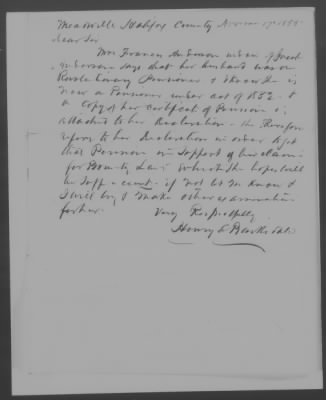 Meadville Halifax County Nov 17th 1855
Dear Sir
Mrs Frances Anderson widow of
Anderson says that her husband was a
Revolutionary Pensioner & that she is
now a Pensioner under act of 1832 &
a Copy of her certificate of Pension is
attached to her Declaration she therefore
refers to her Declaration in order to get
that Pension in support of her claim
for Bounty Land which she hopes will
be sufficient if not let me know &
I will try & make other examination
for her.
Very Respectfully
Henry E Barksdale